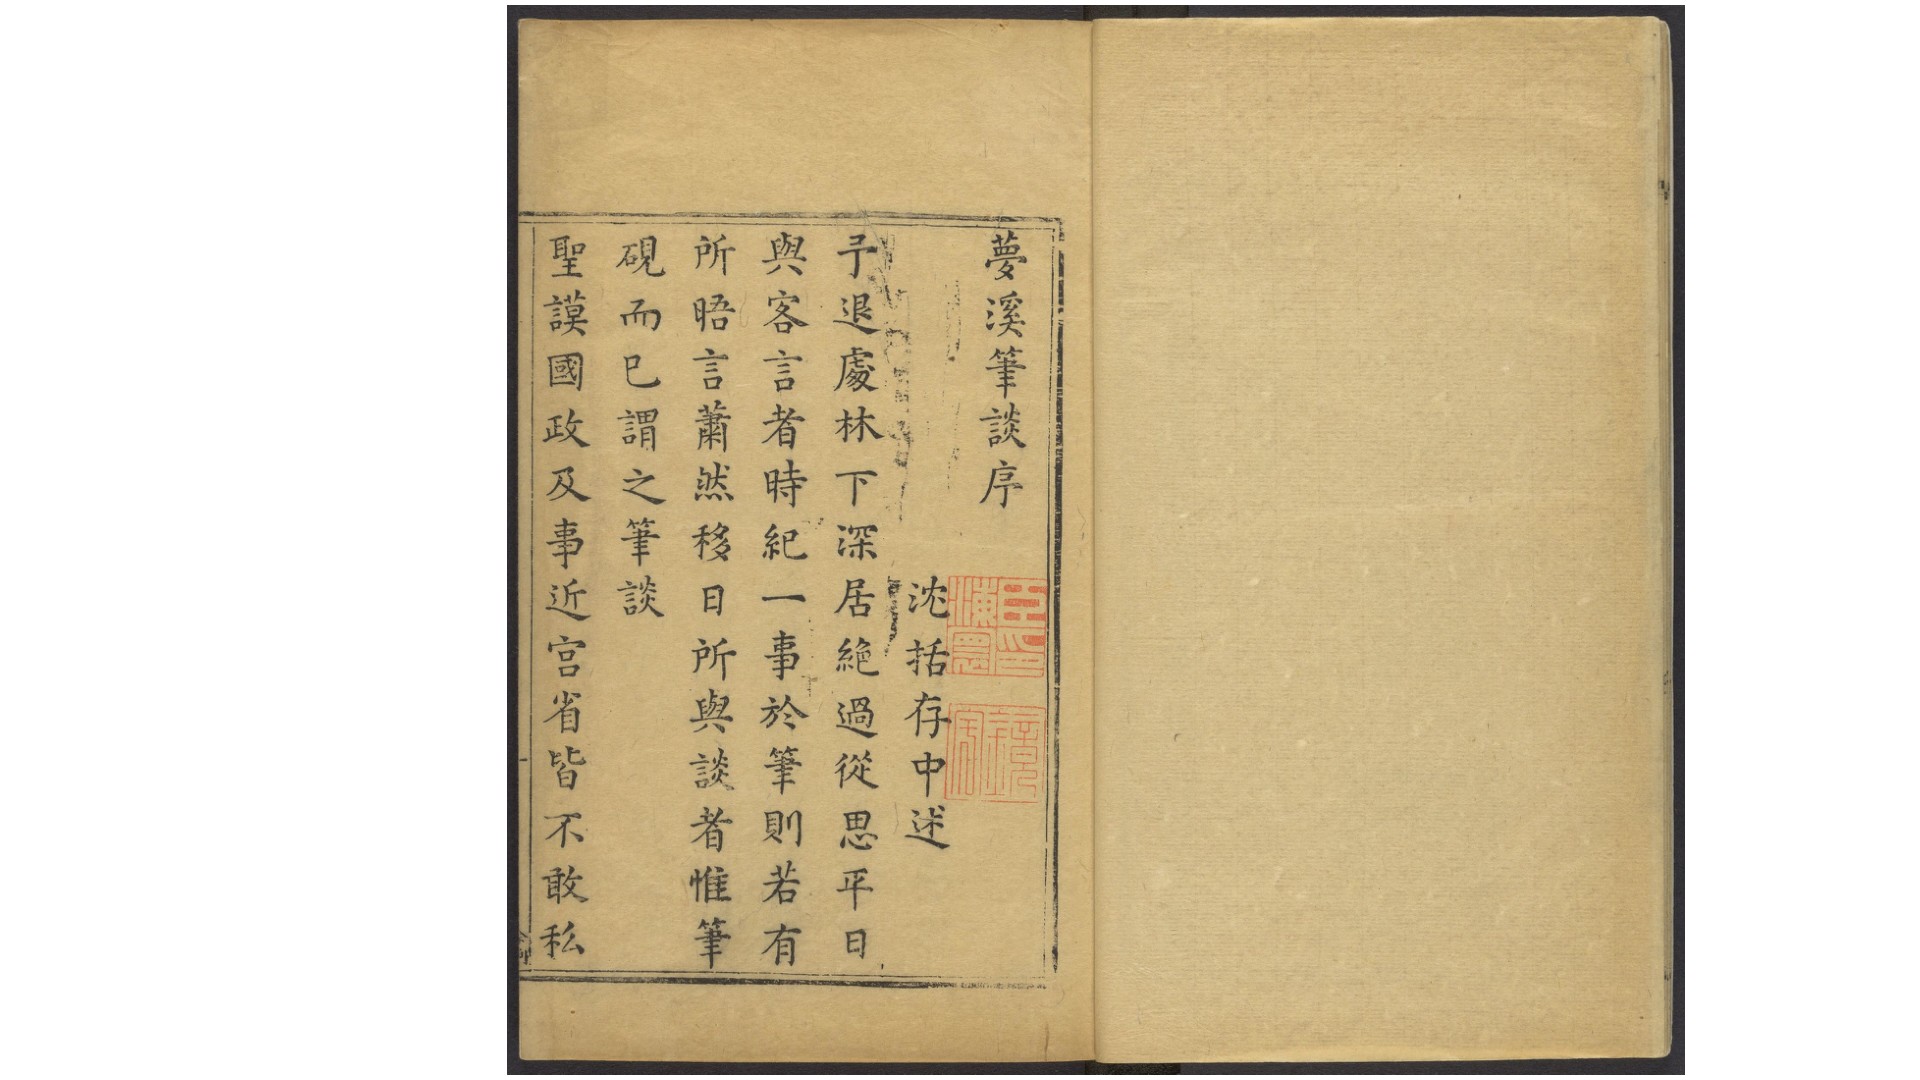 夢溪筆談序
沈括存中述
予退處林下深居絶過從思平日
與客言者時紀一事於筆則若有
所晤言蕭然移日所與談者惟筆
硯而已謂之筆談
聖謨國政及事近宫省皆不敢私